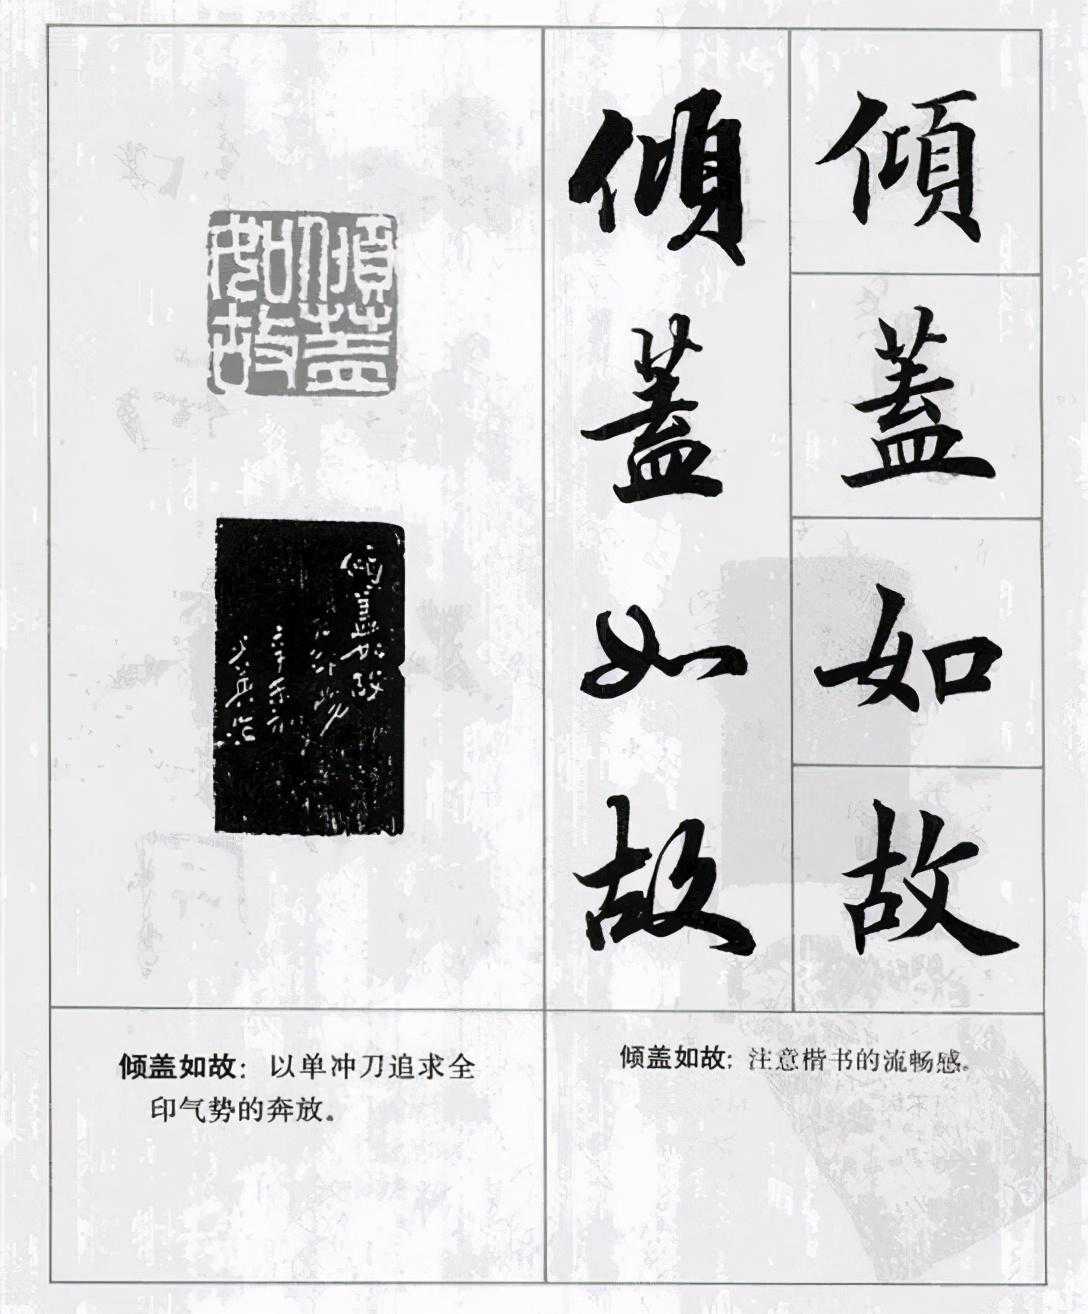 傾蓋如故
傾蓋如故
傾蓋如故
傾蓋如故
辛未
倾盖如故：以单冲刀追求全
印气势的奔放。
倾盖如故：注意楷书的流畅感。